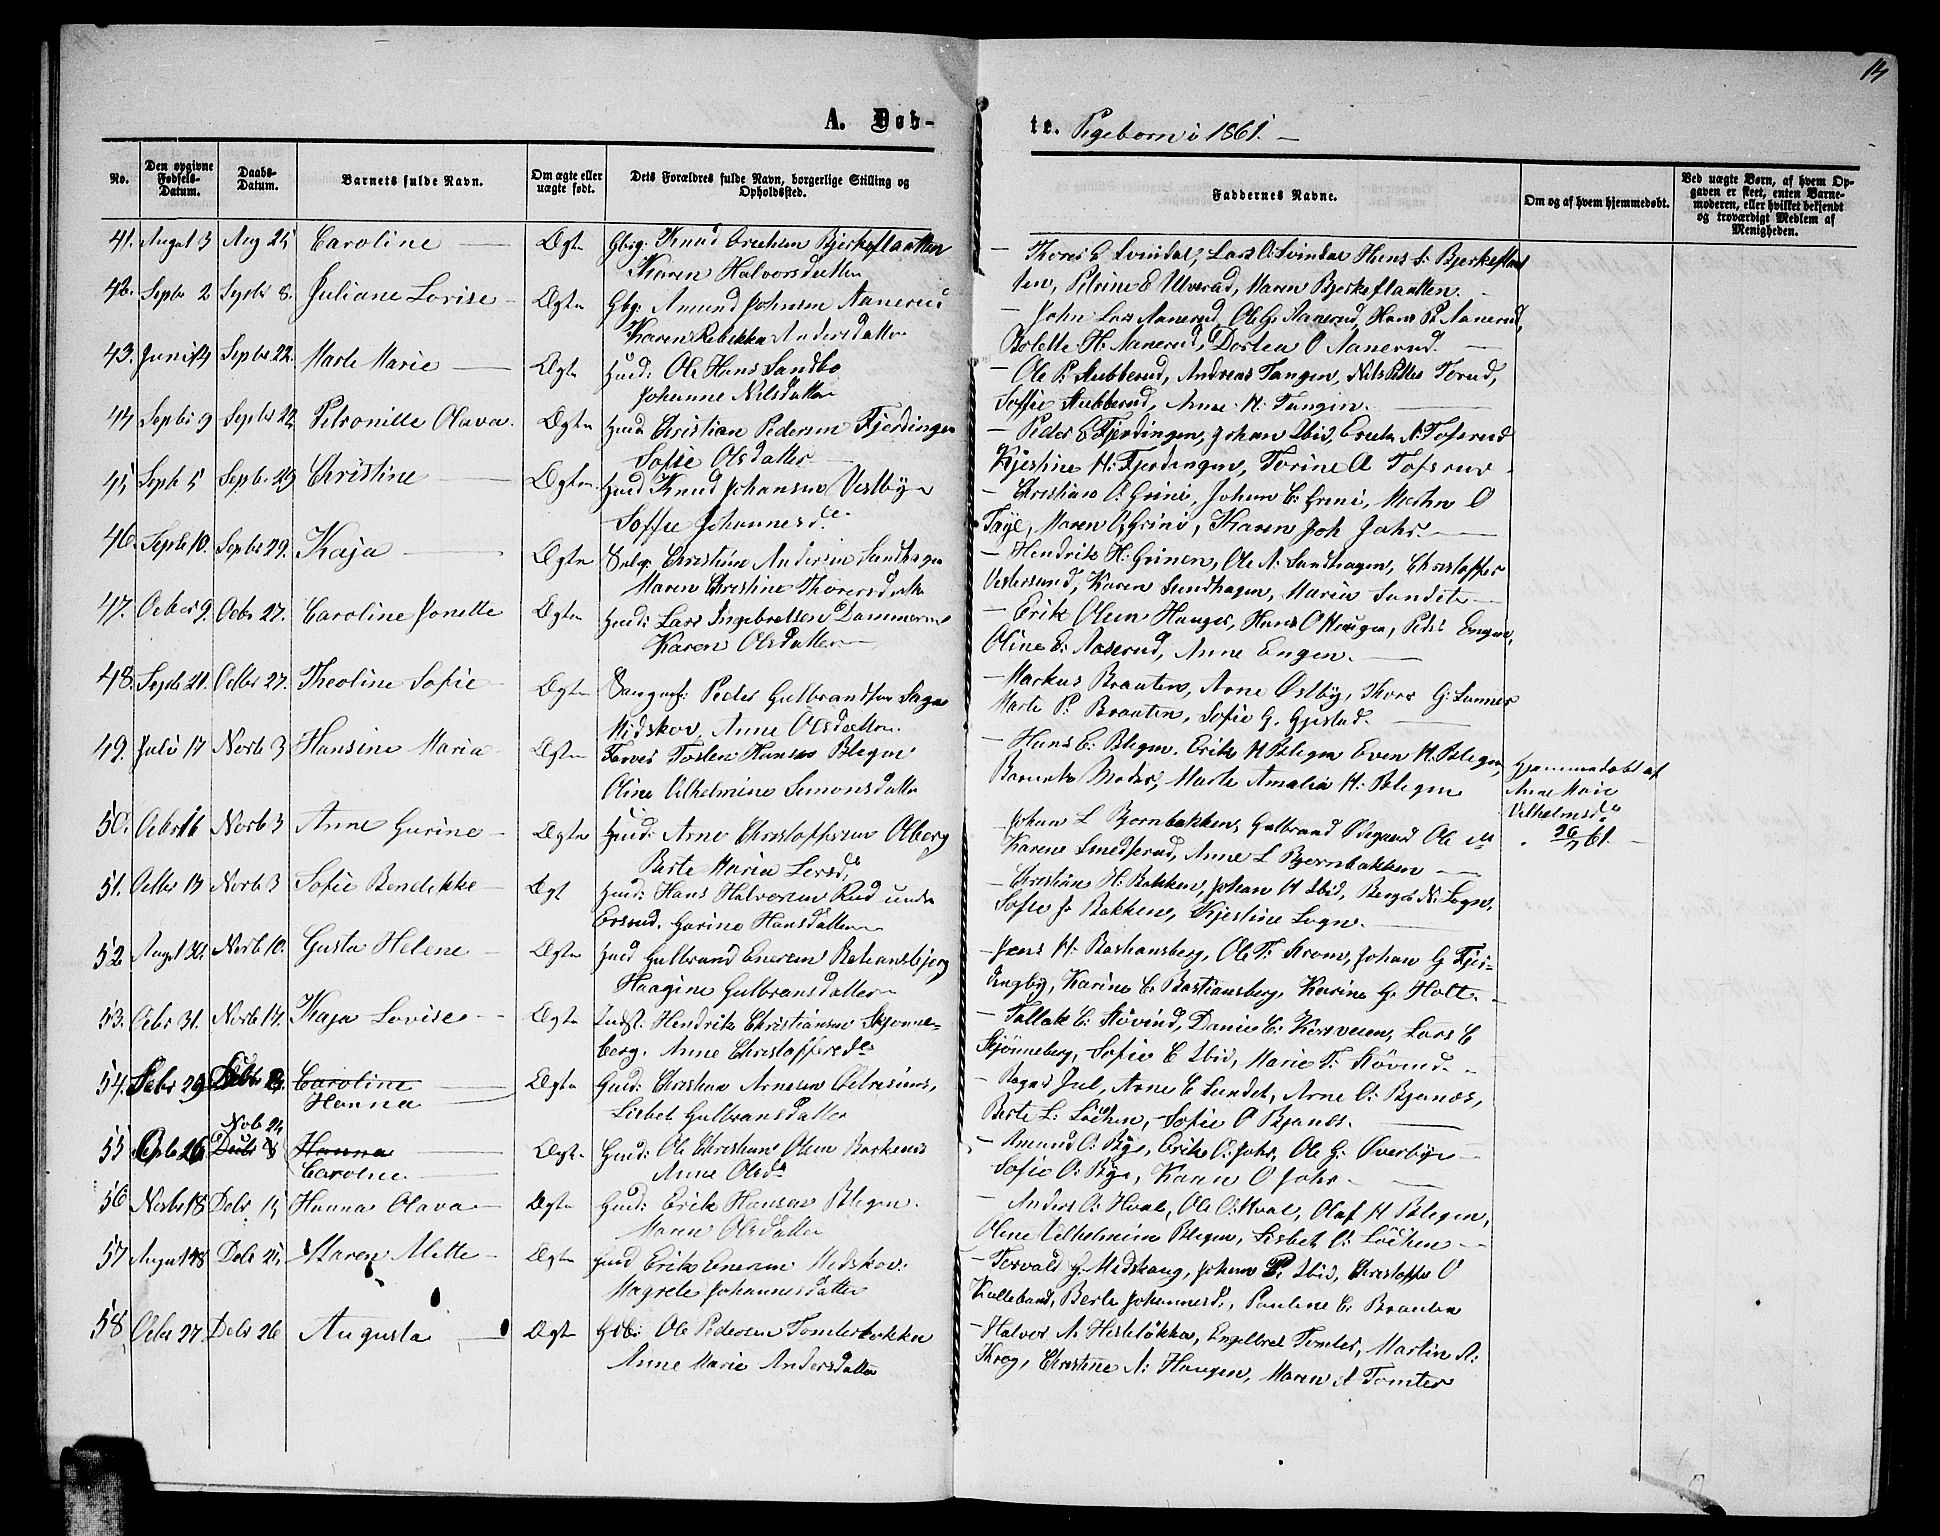 14
A. Døb-
te. Pigebørn i 1861. —
No.
Den opgivne Fødsels-Datum.
Daabs-Datum.
Barnets fulde Navn.
Om ægte eller uægte født.
Dets Forældres fulde Navn, borgerlige Stilling og Opholdssted.
Faddernes Navne.
Om og af hvem hjemmedøbt.
Ved uægte Børn, af hvem Opgaven er skeet, enten Barnemoderen, eller hvilket bekjendt og troværdigt Medlem af Menigheden.
41. August 3 Aug 25 Caroline — Ægte Gbrg: Knud Bjerkeflaatten
Karen Halvorsdatter
— Thores E Svindal, Lars O: Svindal Hans L: Bjerkeflaat
ten, Petrine E Ulverud, Maren Bjerkeflaatten.
42. Septbr 2 Septbr 8. Juliane Lovise — Ægte Gbg: Amund Johnsen Aanerud
Karen Rebekka Andersdatter
— John Lars Aanerud, Ole G. Aanerud, Hans P. Aanerud,
Bolette H. Aanerud, Dortea O Aanerud. —
43. Juni 14 Septbr 22. Marte Marie — Ægte Husd: Ole Hans Sandbo
Johanne Nilsdatter
— Ole P. Stubberud, Andreas Tangen, Nils Torud,
Soffie Stubberud, Anne H. Tangen. —
44 Septbr 9 Septbr 22 Petronille Olava. Ægte Husd Christian Pedersen Fjerdingen
Sofie Olsdatter
— Peder E Fjerdingen, Johan Ibid, A: Tofsrud
Kjestine H: Fjerdingen, Torine A Tofsrud
45 Septb 5 Septbr 29 Christine — Ægte Husd Knud Johansen Vestbye
Soffie Johannesd.
— Christian O: Grini, Johan C: Grini, O
Maren O, Grini, Karen Joh Jahr. —
46. Septb 10. Septbr 29. Kaja — Ægte Christian Andersen Sandhagen
Maren Christine Thoresdatter
— Hendrik H: Grinen, Ole A: Sandhagen, Christoffer
Karen Sandhagen, Maren
47. Octber 9. Octbr 27. Caroline Jonette Ægte Husd: Lars Ingebretsen Dammerne
Karen Olsdatter —
— Erik Olsen Hauger, Hans O Haugen, Peder Engen,
Oline E: Aaserud, Anne Engen. —
48. Septb 21. Octbr 27. Theoline Sofie Ægte Peder Gulbrandsen
Midskov, Anne Olsdatter
— Markus Braaten, Arne Østby, Thore G:
Marte P: Braaten, Sofie G. Gjestad. —
49. Juli 17 Norb 3 Hansine Maria Ægte Hansen Blegen
Oline Vilhelmine Simonsdatter
— Hans E: Blegen, Erik H Blegen Even H. Blegen,
Barnets Moder, Marte Amalia H: Blegen
Hjemmedøbt af
Anne Marie
Vilhelmsd.
26/7 61.
50. Octbr 16 Norb 3 Anne Gurine — Ægte Husd: Arne Christoffersen Olberg
Berte Maria Larsd.
Johan L Bjørnbakken, Gulbrand Ødegaard Ole
Karen Smedsrud, Anne L Bjørnbakken —
51. Octbr 17 Norb 3 Sofie Bendikke — Ægt Husd: Hans Halvorsen Rud under
Ersrud. Gurine Hansdatter
— Christian H: Bakken, Johan H Ibid, Berger N: Sogn,
Sofie J: Bakken, Kjestine Sogn. —
52. Augst 30. Norb 10. Gusta Helene — Ægte Husd Gulbrand Enersen
Haagine Gulbransdatter
— Jens H: Bastiansberg, Ole T: Krom, Johan G Fjer-
dingby, Karine C: Bastiansberg, Karine G: Holt. —
53. Octbr 31. Norb 17. Kaja Lovise — Ægte Indst. Hendrik Christiansen Skjønne-
berg. Anne Christoffersd.
— Tallak E: Høvind, Daniel E: Korsveien, Lars E
Skjønneberg, Sofie E Ibid, Marie T: Høvind.
54. Octbr 29 Decbr 8. Caroline
Hanna — Ægte Husd: Christian Arnesen
Lisbet Gulbransdatter
— Jul, Arne E Sundet, Arne O: Bjanæs,
Berte L: Løchen, Sofie O Bjanes. —
Nob 24
55 Septb 26 Decbr 8 Hanna
Caroline. — Ægte Husd: Ole Christian Olsen Barkenes
Anne Olsd.
— Amund O: Bye, Erik O: Jahr, Ole G: Øverbye —
Sofie O: Bye, Karen O Jahr. —
56 Norbr 18 Debr 15 Hanna Olava — Ægte Husd: Erik Hansen Blegen.
Maren Olsdatter
— Anders O: Hval, Ole O: Hval, Olaf H Blegen,
Oline Vilhelmine Blegen, Lisbet O: Løchen —
57 August 18 Debr 25 Maren Mette — Ægte Husd Erik Enersen Midskov.
Magrete Johannesdatter
— Torvald J. Midskaug, Johan P: Ibid, Christoffer O
Kullebund, Berte Johannesd., Pauline E: Braaten
58. Octbr 27. Debr 26 Augusta — Ægte Gbr: Ole Pedersen Tomterbakken
Anne Marie Andersdatter
— Halvor A. Hesteløkka, Engelbret Tomter, Martin A:
Krog, Christine A: Haugen, Maren A Tomter